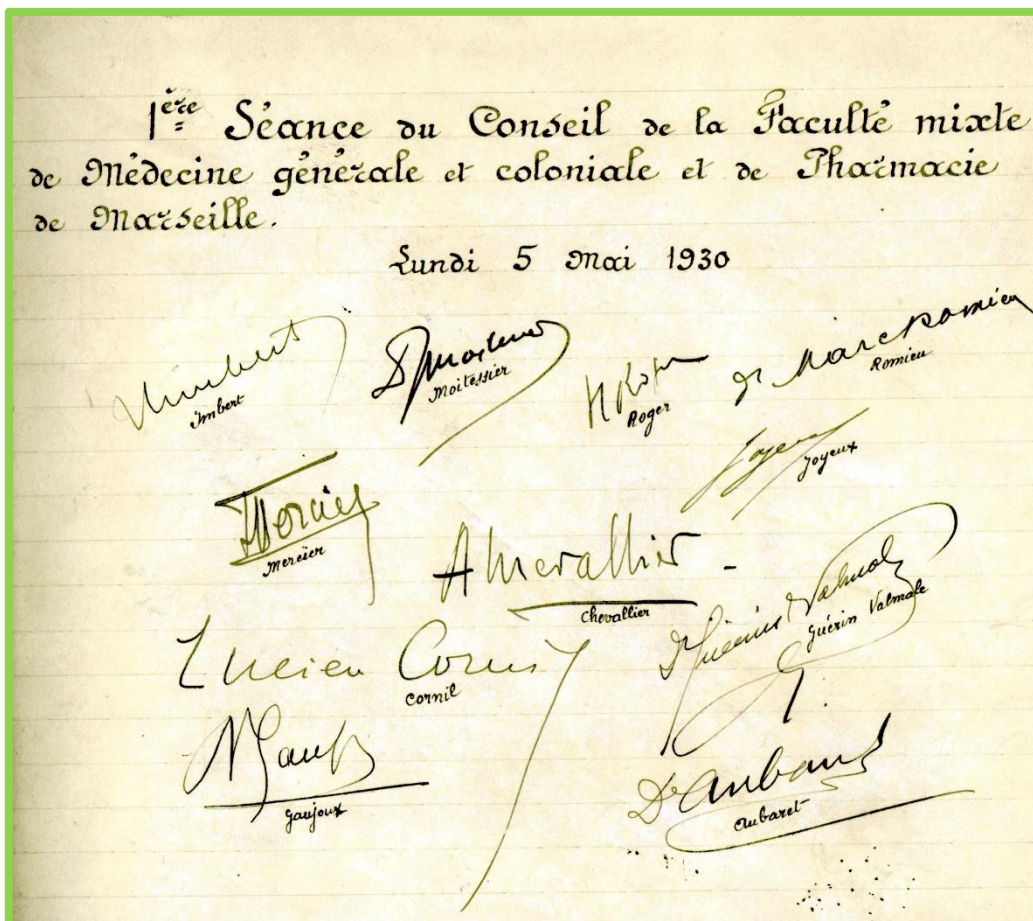 1ère Séance du Conseil de la Faculté mixte
de Médecine générale et coloniale et de Pharmacie
de Marseille.
Lundi 5 Mai 1930
Imbert
Imbert
Moitessier
H Roger
Roger
Dr Marc Romieu
Romieu
Joyeux
Joyeux
Mercier
Mercier
A Chevallier
Chevallier
Dr Guérin Valmale
Guérin Valmale
Lucien Cornil
Cornil
Gaujoux
Dr Aubaret
Aubaret